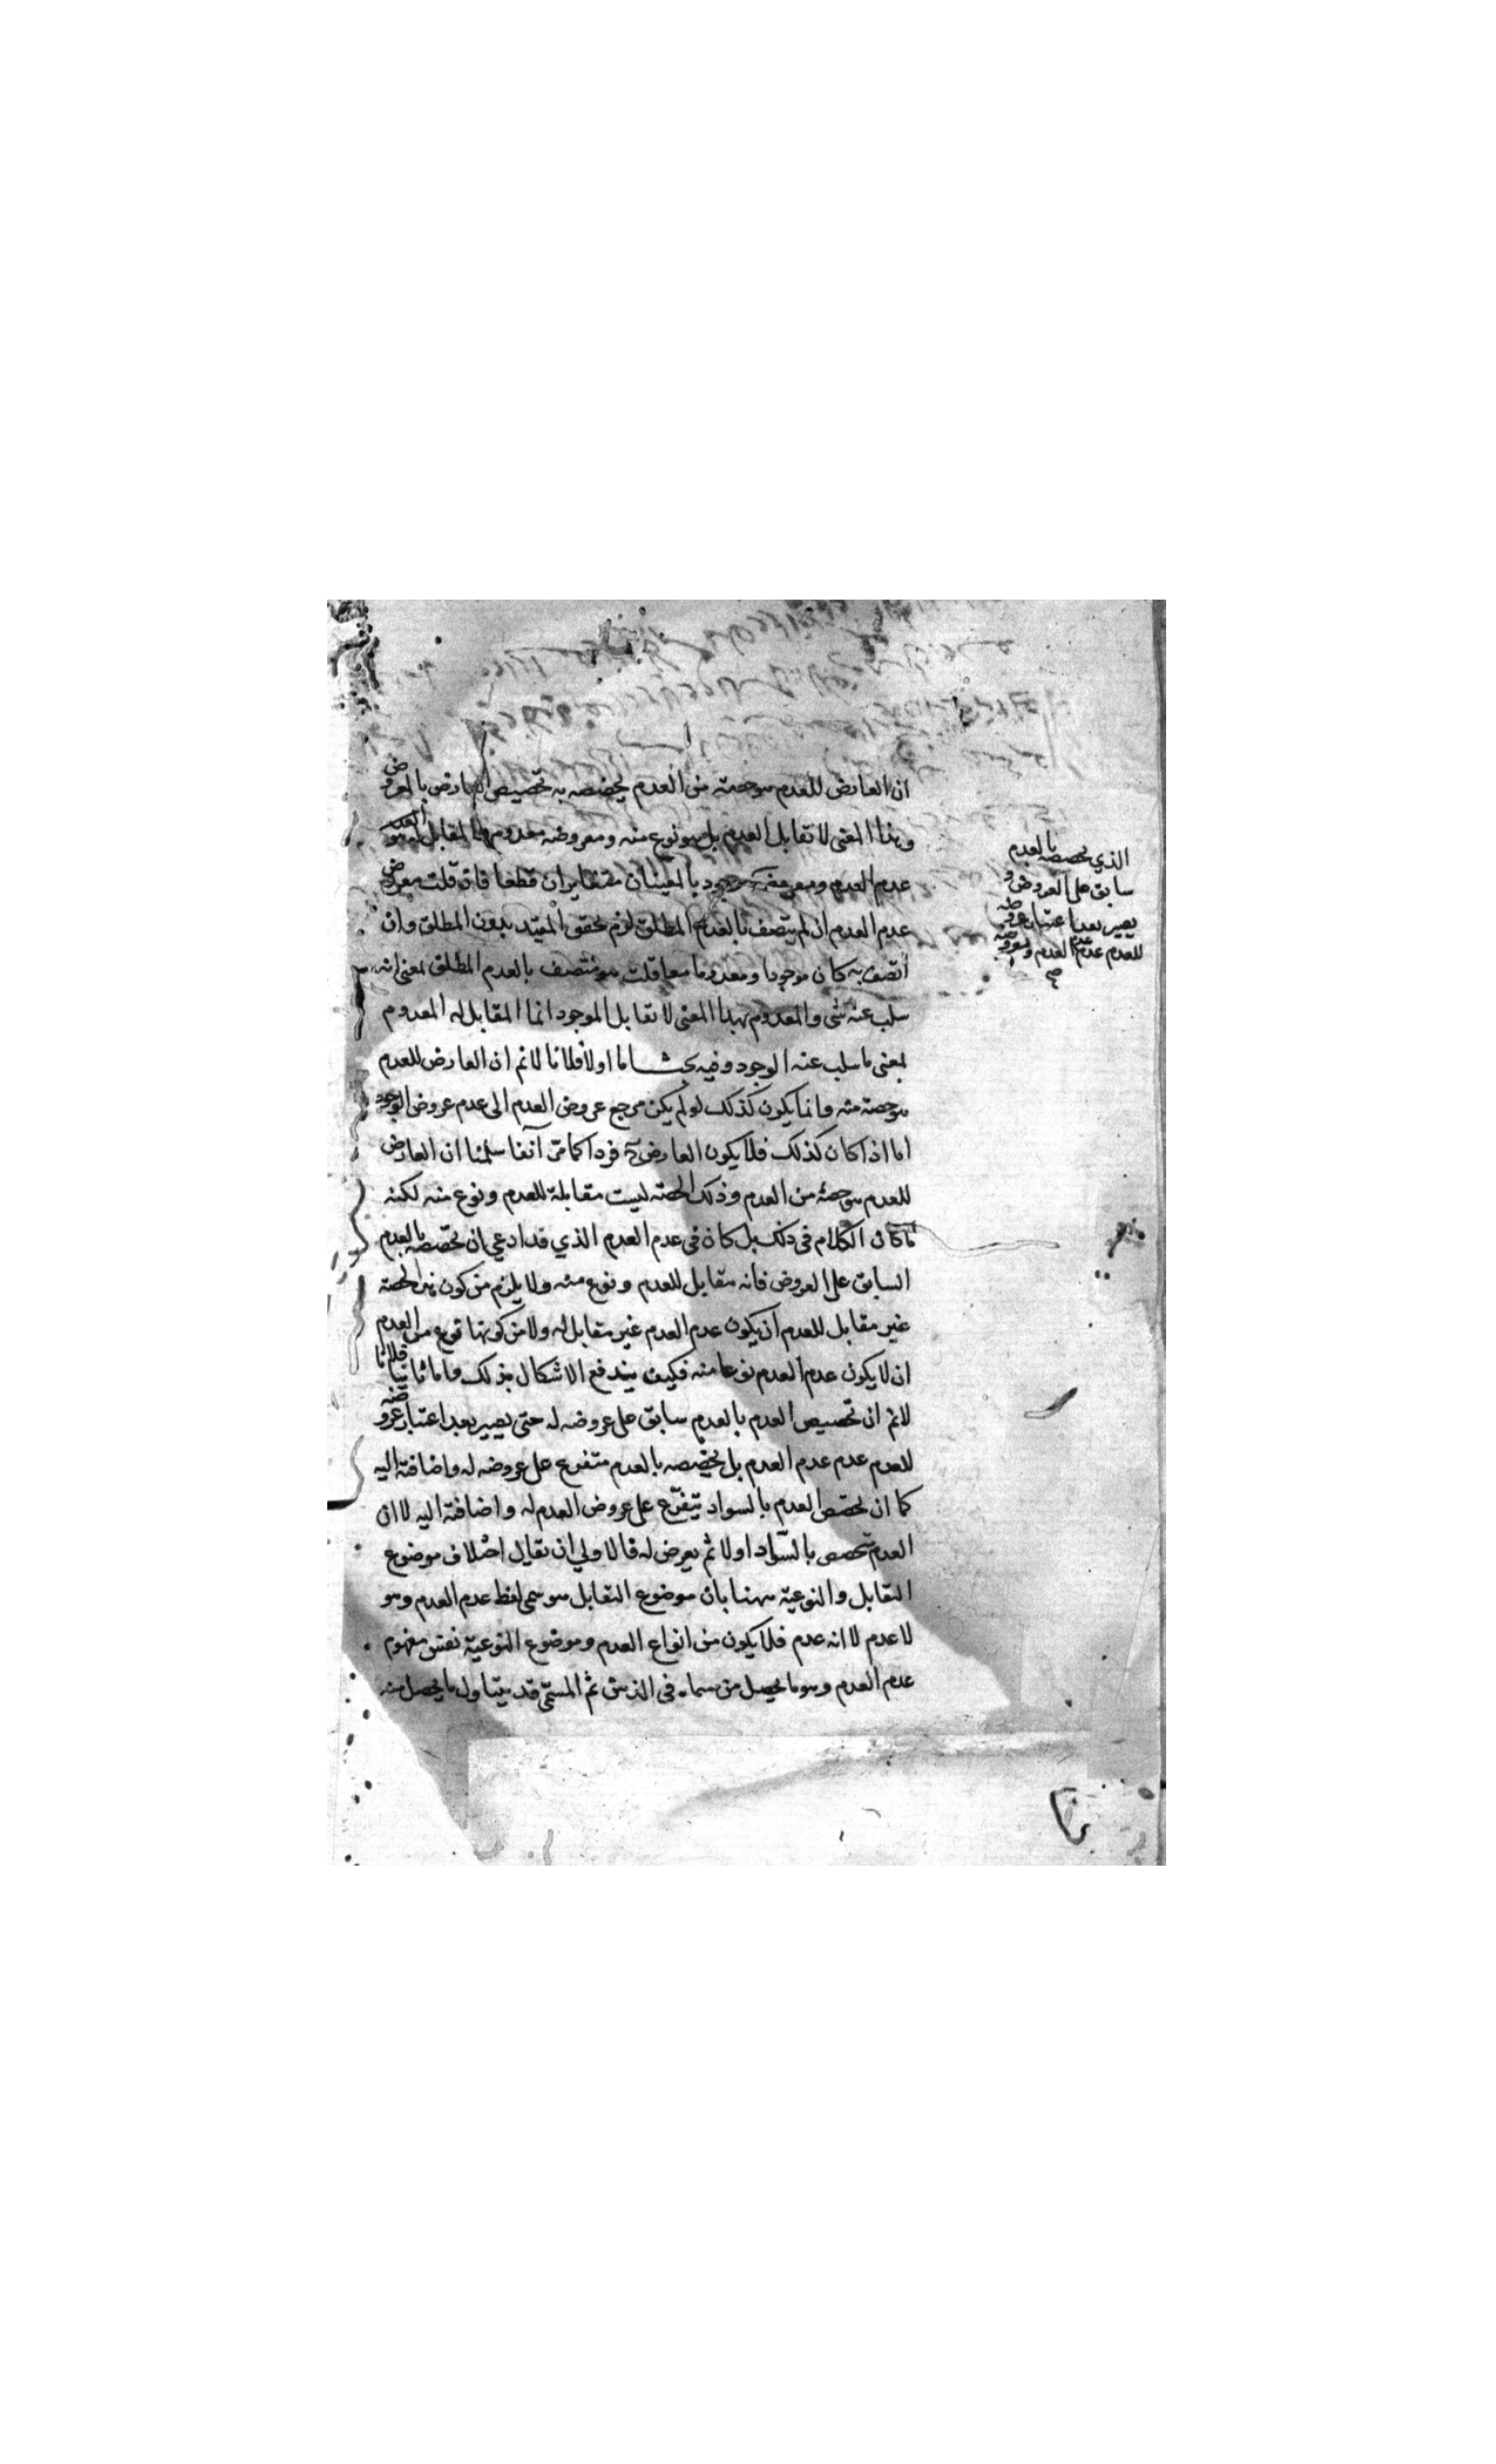 ان العارض للعدم هو حصته من العدم يخصصه به تخصيص العارض بالمعروض
وبهذا المعنى لا تقابل العدم بل هو نوع منه ومعروضه معدوم بها المقابل له هو العدم
عدم العدم ومعروضه موجود بالمعينان متغايران قطعا فان قلت معروض
عدم العدم ان لم يتصف بالعدم المطلق لزم تحقق المقيد بدون المطلق وان
اتصف به كان موجودا ومعدوما معا قلت هو متصف بالعدم المطلق بمعنى انه
سلب عنه شي والمعدوم بهذا المعنى لا تقابل الموجود انما المقابل له المعدوم
بمعنى ما سلب عنه الوجود وفيه بحث اما اولا فلانا لا نم ان العارض للعدم
هو حصته منه وانما يكون كذلك لو لم يكن مرجع عروض العدم الى عدم عروض الوجود
اما اذا كان كذلك فلا يكون العارض ح فردا كما مر آنفا سلمنا ان العارض
للعدم هو حصة من العدم وذلك الحصة ليست مقابلة للعدم ونوع منه لكنه
ما كان الكلام في ذلك بل كان في عدم العدم الذي قد ادعي ان تخصصه بالعدم
السابق على العروض فانه مقابل للعدم ونوع منه ولا يلزم من كون هذا الحصة
غير مقابل للعدم ان يكون عدم العدم غير مقابل له ولا من كونها نوع من العدم
ان لا يكون عدم العدم نوعا منه فكيف يندفع الاشكال بذلك واما ثانيا فلانا
لا نم ان تخصيص العدم بالعدم سابق على عروضه له حتى يصير بعد اعتبار عروضه
للعدم عدم عدم العدم بل تخصصه بالعدم متفرع على عروضه له واضافته اليه
كما ان تخصص العدم بالسواد يتفرع على عروض العدم له واضافته اليه لا ان
العدم تخصص بالسواد اولا ثم يعرض له فالاولى ان يقال اختلاف موضوع
التقابل والنوعية ههنا بان موضوع التقابل هو مسمى لفظ عدم العدم وهو
لا عدم لا انه عدم فلا يكون من انواع العدم وموضوع النوعية نفس مفهوم
عدم العدم وهو ما يحصل من مسماه في الذهن ثم المسمى قد يتناول ما يحصل منه
الذي تخصصه بالعدم
سابق على العروض و
يصير بعد اعتبار عروضه
للعدم عدم عدم العدم ومعروضه
صح